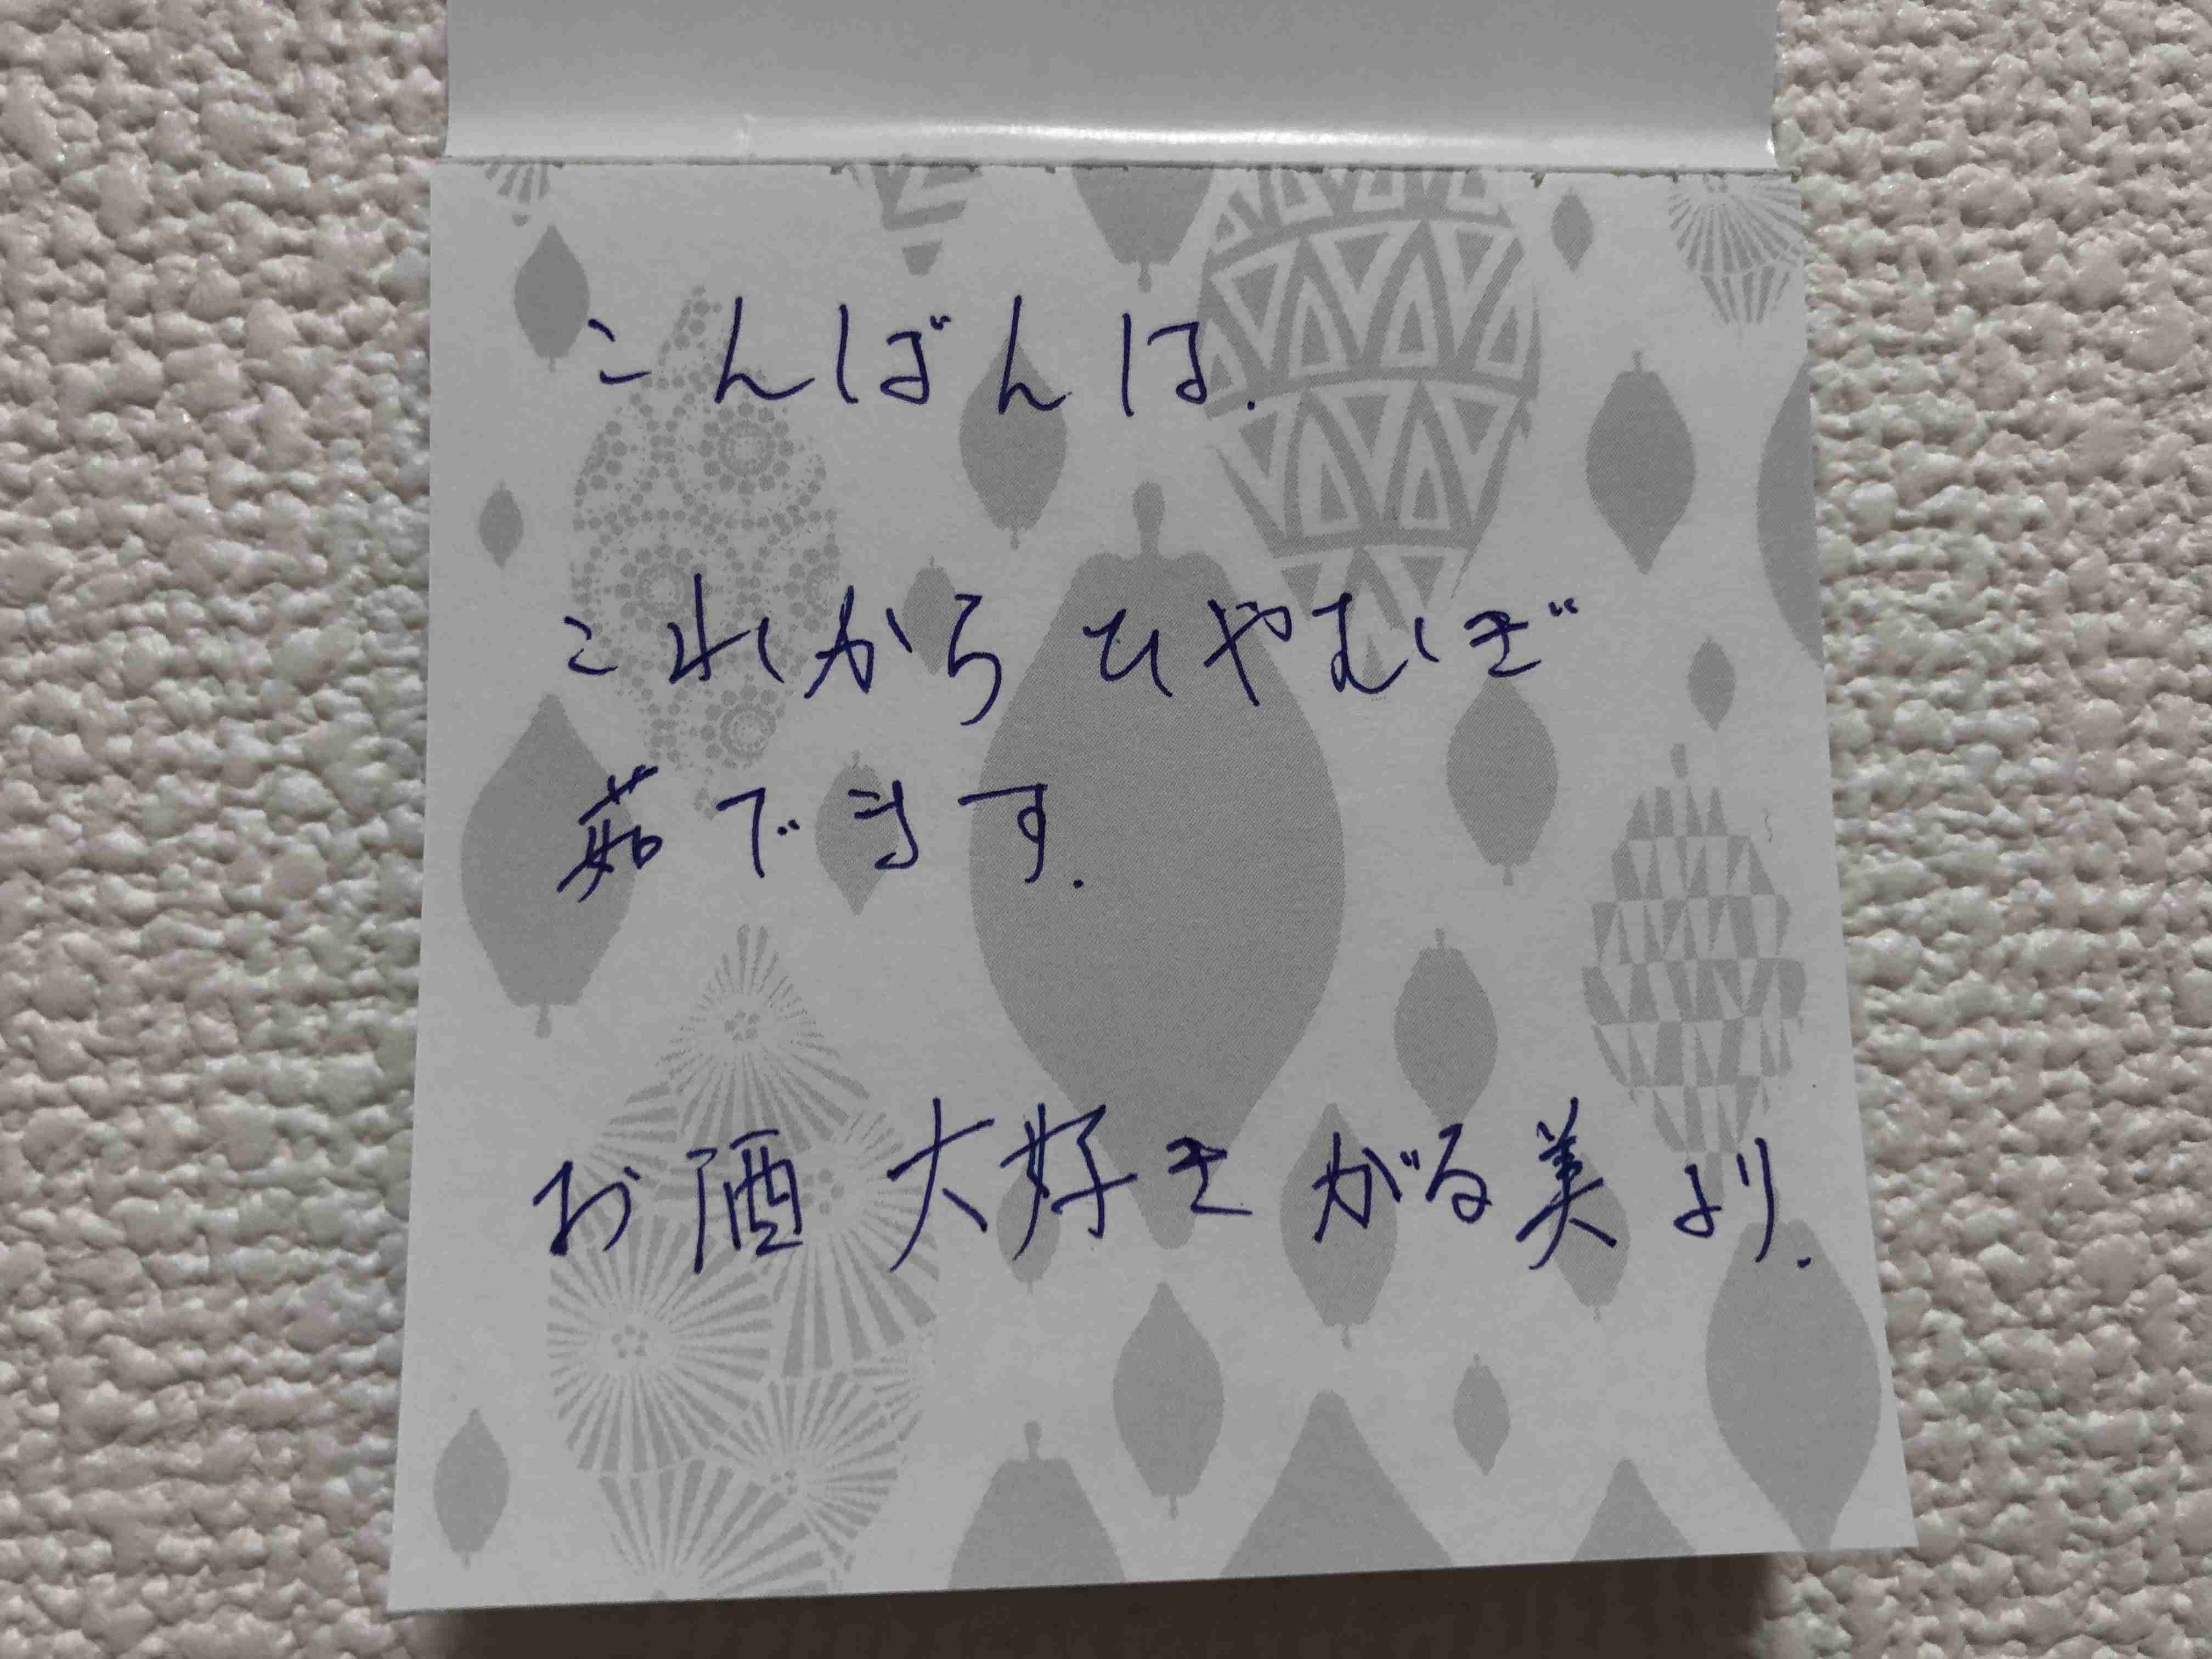 こんばんは.
これからひやむぎ
茹できます.
お酒 大好き がる美 より.